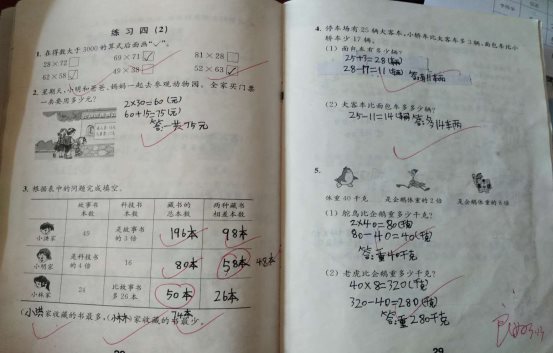 练习四(2)
1. 在得数大于3000的算式后面画“√”。
28×72 69×71 √ 81×28
62×58 √ 49×38 52×63 √
2. 星期天,小明和爸爸、妈妈一起去参观动物园。全家买门票
一共要用多少元?
2×30=60(元)
60+15=75(元)
答:一共75元
3. 根据表中的问题完成填空。
故事书本数 科技书本数 藏书的总本数 两种藏书相差本数
小洪家 49 是故事书的3倍 196本 98本
小明家 是科技书的4倍 16 80本 58本 48本
小林家 24 比故事书多26本 50本 26本
74本
(小洪)家收藏的书最多,(小林)家收藏的书最少。
4. 停车场有25辆大客车,小轿车比大客车多3辆,面包车比小
轿车少17辆。
(1) 面包车有多少辆?
25+3=28(辆)
28-17=11(辆)
(2) 大客车比面包车多多少辆?
25-11=14(辆)
5.
体重40千克 是企鹅体重的2倍 是企鹅体重的8倍
(1) 鸵鸟比企鹅重多少千克?
2×40=80(千克)
80-40=40(千克)
答:重40千克
(2) 老虎比企鹅重多少千克?
40×8=320(千克)
320-40=280(千克)
答:重280千克
良